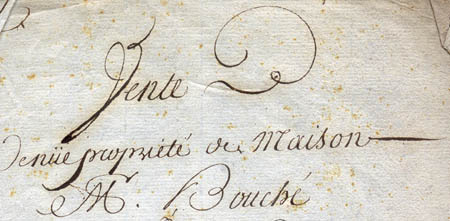 Vente
De nüe propriété de Maison
M. Bouché